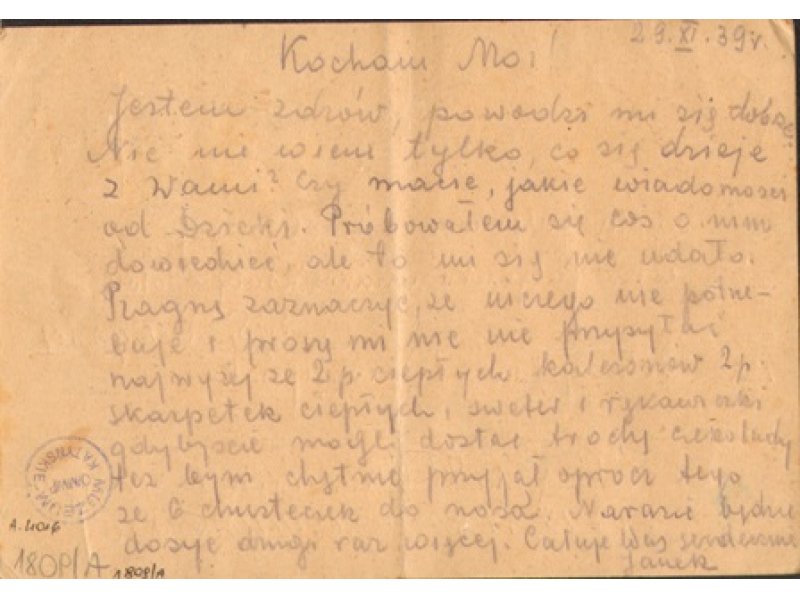 29.XI.39r.
Kochani Moi!
Jestem zdrów, powodzi mi się dobrze.
Nic nie wiem tylko, co się dzieje
z Wami? Czy macie, jakie wiadomości
od Próbowałem się coś o nim
dowiedzieć, ale to mi się nie udało.
Pragnę zaznaczyć, że niczego nie potrze-
buję i proszę mi nic nie przysyłać
najwyżej ze 2 p. ciepłych kalesonów 2 p.
skarpetek ciepłych, sweter i rękawiczki
gdybyście mogli dostać trochę czekolady
też bym chętnie przyjął oprócz tego
ze 6 chusteczek do nosa. Narazie będzie
dosyć drugi raz więcej. Całuję Was serdecznie
Janek
MUZEUM
KATYŃSKIE
A.4046
180P/A
1809/A